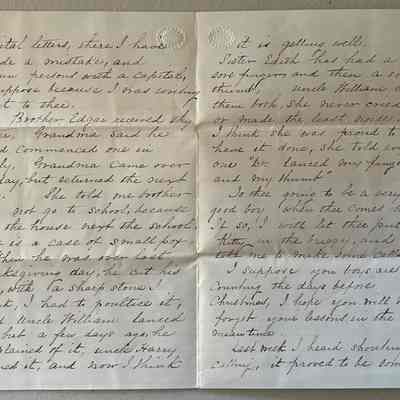 ital letters, there I have
de a mistake, and
persons with a capital,
ppose because I was writing
t to thee.
Brother Edgar received thy
e. Grandma said he
d commenced one in
ly. Grandma came over
day, but returned the next
She told me brother
not go to school, because
the house next the school,
e is a case of small pox.
hen he was over last
ksgiving day, he cut his
, with a sharp stone.
t, I had to poultice it,
d Uncle William lanced
but a few days ago, he
plained of it, Uncle Harry
ned it, and now I think
it is getting well.
Sister Edith has had a
sore finger, and then a so
thumb, Uncle William
them both, she never cried
or made, the least noise.
I think she was proud to
have it done, she told ever
one "Dr. lanced my finger
and my thumb"
Is thee going to be a very
good boy when thee comes
If so, I will let thee
Kitty, in the buggy, and
told me to make some
I suppose you boys are
counting the days before
Christmas, I hope you will
forget your lessons in the
meantime
Last week I heard
calling, it proved to be some